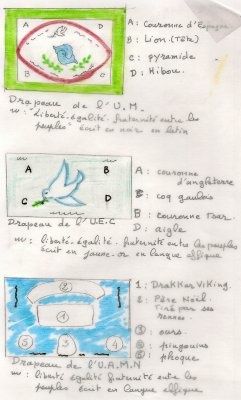 A D
B C
A : Couronne d'Espagne
B : Lion. (Tête)
C : pyramide
D : Hibou.
Drapeau de l'U.M.
m : "Liberté. égalité. fraternité entre les
peuples" écrit en noir en latin
A B
C D
A : couronne
d'angleterre
B : coq gaulois
B : couronne Tsar.
D : aigle
Drapeau de l'U.E.C
m : liberté. égalité. fraternité entre les peuples
écrit en jaune. or en langue elfique
2
1
5 4 3
1 : Drakkar Viking.
2 : Père Noël.
Tiré par ses
rennes.
3 : ours.
4 : pingouins
5 : phoque
Drapeau de l'U.A.M.N
m : liberté égalité fraternité entre les
peuples écrit en langue elfique